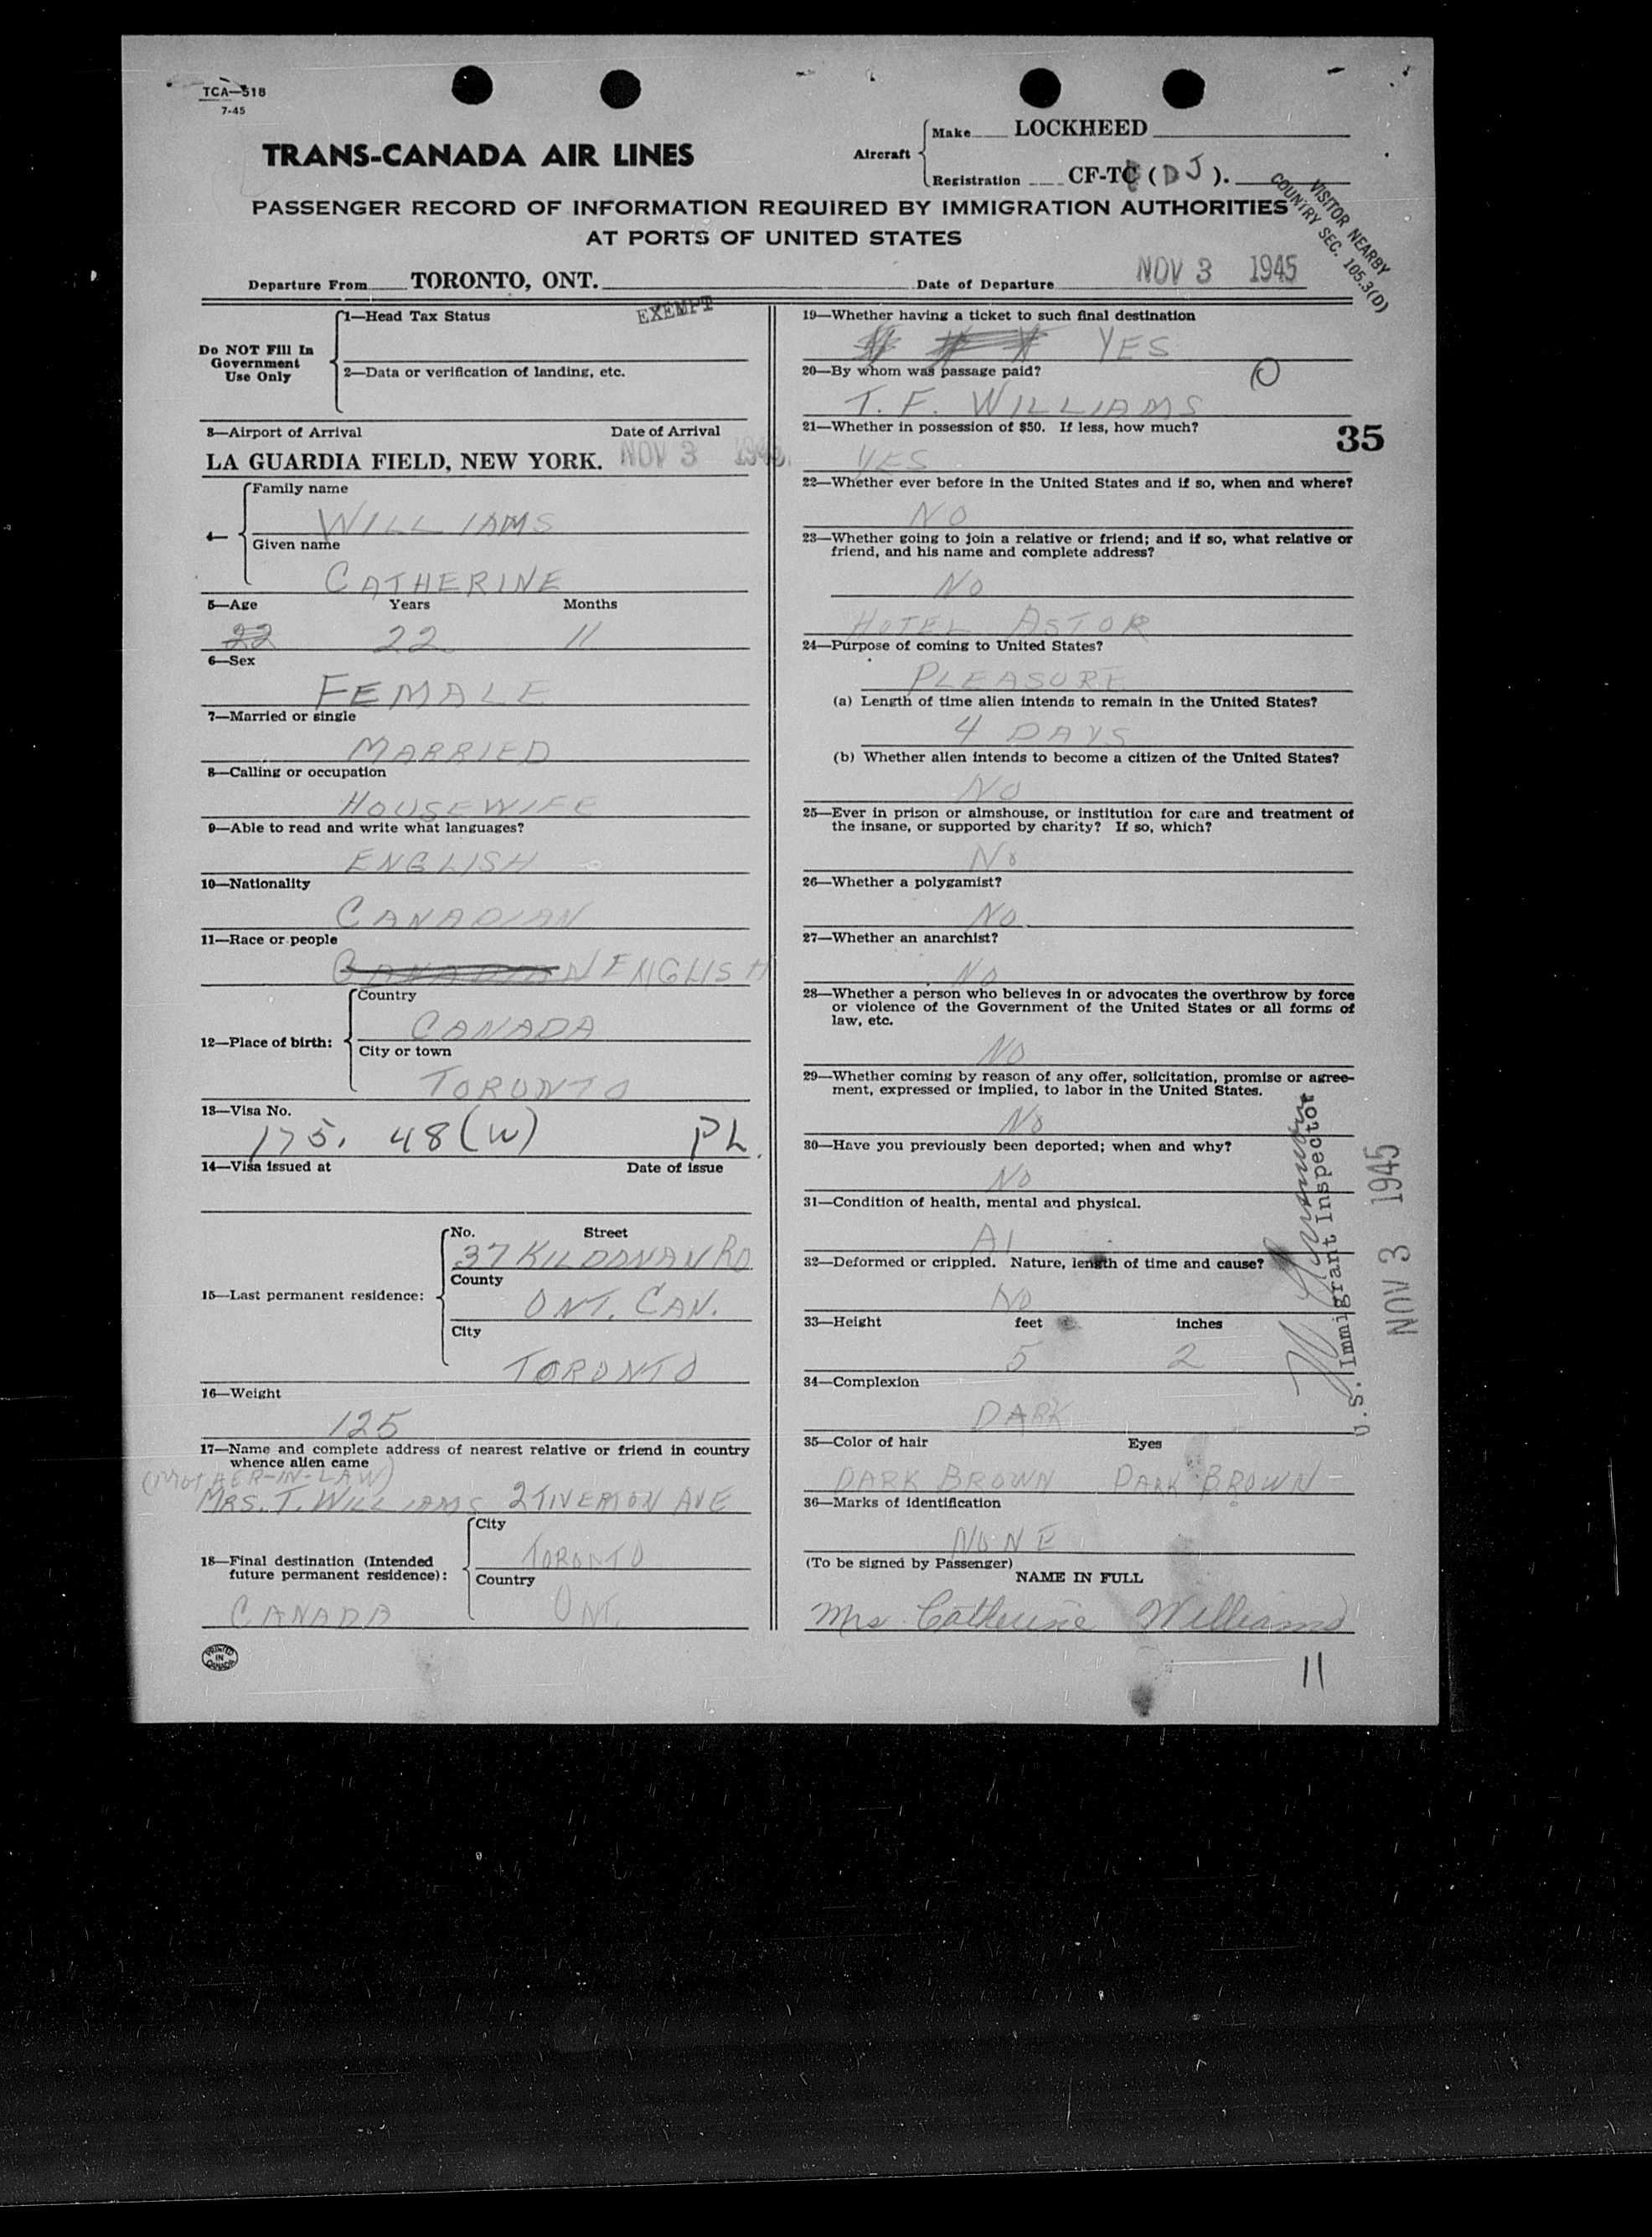 TCA—518
7-45
TRANS-CANADA AIR LINES
Aircraft
Make LOCKHEED
Registration CF-TC (DJ).
PASSENGER RECORD OF INFORMATION REQUIRED BY IMMIGRATION AUTHORITIES
AT PORTS OF UNITED STATES
VISITOR NEARBY
COUNTRY SEC. 105.3(D)
Departure From TORONTO, ONT. Date of Departure NOV 3 1945
Do NOT Fill In
Government
Use Only
1—Head Tax Status EXEMPT
2—Data or verification of landing, etc.
3—Airport of Arrival Date of Arrival
LA GUARDIA FIELD, NEW YORK. NOV 3 1945
4—
Family name
WILLIAMS
Given name
CATHERINE
5—Age Years Months
22 22 11
6—Sex
FEMALE
7—Married or single
MARRIED
8—Calling or occupation
HOUSEWIFE
9—Able to read and write what languages?
ENGLISH
10—Nationality
CANADIAN
11—Race or people
CANADIAN ENGLISH
12—Place of birth:
Country
CANADA
City or town
TORONTO
13—Visa No.
175. 48 (W) PL.
14—Visa issued at Date of issue
15—Last permanent residence:
No. Street
37 KILDONAN RD
County
ONT. CAN.
City
TORONTO
16—Weight
125
17—Name and complete address of nearest relative or friend in country
whence alien came
(MOTHER-IN-LAW)
MRS. T. WILLIAMS 2 TIVERTON AVE
18—Final destination (Intended
future permanent residence):
City
TORONTO
Country
CANADA ONT.
PRINTED
IN
CANADA
19—Whether having a ticket to such final destination
YES
20—By whom was passage paid?
T. F. WILLIAMS
21—Whether in possession of $50. If less, how much?
35
YES
22—Whether ever before in the United States and if so, when and where?
NO
23—Whether going to join a relative or friend; and if so, what relative or
friend, and his name and complete address?
NO
HOTEL ASTOR
24—Purpose of coming to United States?
PLEASURE
(a) Length of time alien intends to remain in the United States?
4 DAYS
(b) Whether alien intends to become a citizen of the United States?
NO
25—Ever in prison or almshouse, or institution for care and treatment of
the insane, or supported by charity? If so, which?
NO
26—Whether a polygamist?
NO
27—Whether an anarchist?
NO
28—Whether a person who believes in or advocates the overthrow by force
or violence of the Government of the United States or all forms of
law, etc.
NO
29—Whether coming by reason of any offer, solicitation, promise or agree-
ment, expressed or implied, to labor in the United States.
NO
30—Have you previously been deported; when and why?
NO
31—Condition of health, mental and physical.
A1
32—Deformed or crippled. Nature, length of time and cause?
NO
33—Height feet inches
5 2
34—Complexion
DARK
35—Color of hair Eyes
DARK BROWN DARK BROWN
36—Marks of identification
NONE
(To be signed by Passenger)
NAME IN FULL
Mrs Catherine Williams
11
U.S. Immigrant Inspector
NOV 3 1945